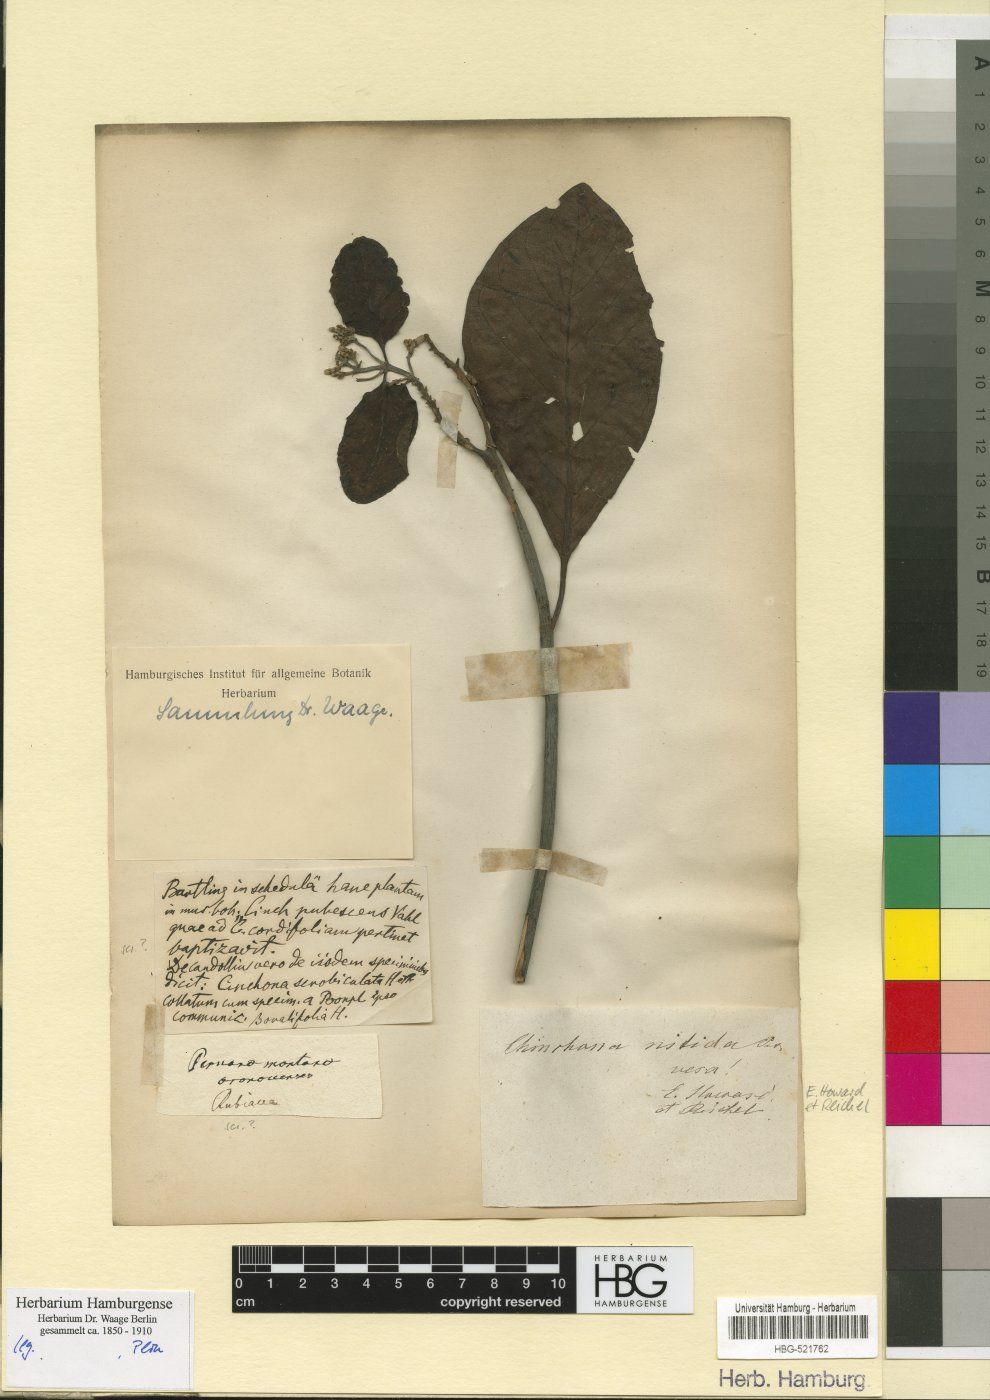 Hamburgisches Institut für allgemeine Botanik
Herbarium
Sammlung Dr. Waage.
Bartling in schedulâ hanc plantam
in mus. boh. Cinch pubescens Vahl
quae ad C. cordifoliam pertinet
baptizavit.
Decandollius vero de iisdem speciminibus
dicit: Cinchona scrobiculata H
collatum cum specim. a Bonpl ipso
communic. B ovalifolia H.
sci ?
Rubiacea
sci. ?
Chinchona nitida
vera!
E. Howard!
et Reichel
E. Howard
et Reichel
0 1 2 3 4 5 6 7 8 9 10
cm
copyright reserved
HERBARIUM
HBG
HAMBURGENSE
Herbarium Hamburgense
Herbarium Dr. Waage Berlin
gesammelt ca. 1850 - 1910
lg.
Peru
Universität Hamburg - Herbarium
HBG-521762
Herb. Hamburg
A
1
2
3
4
5
6
M
8
9
10
11
12
13
14
15
B
17
18
19